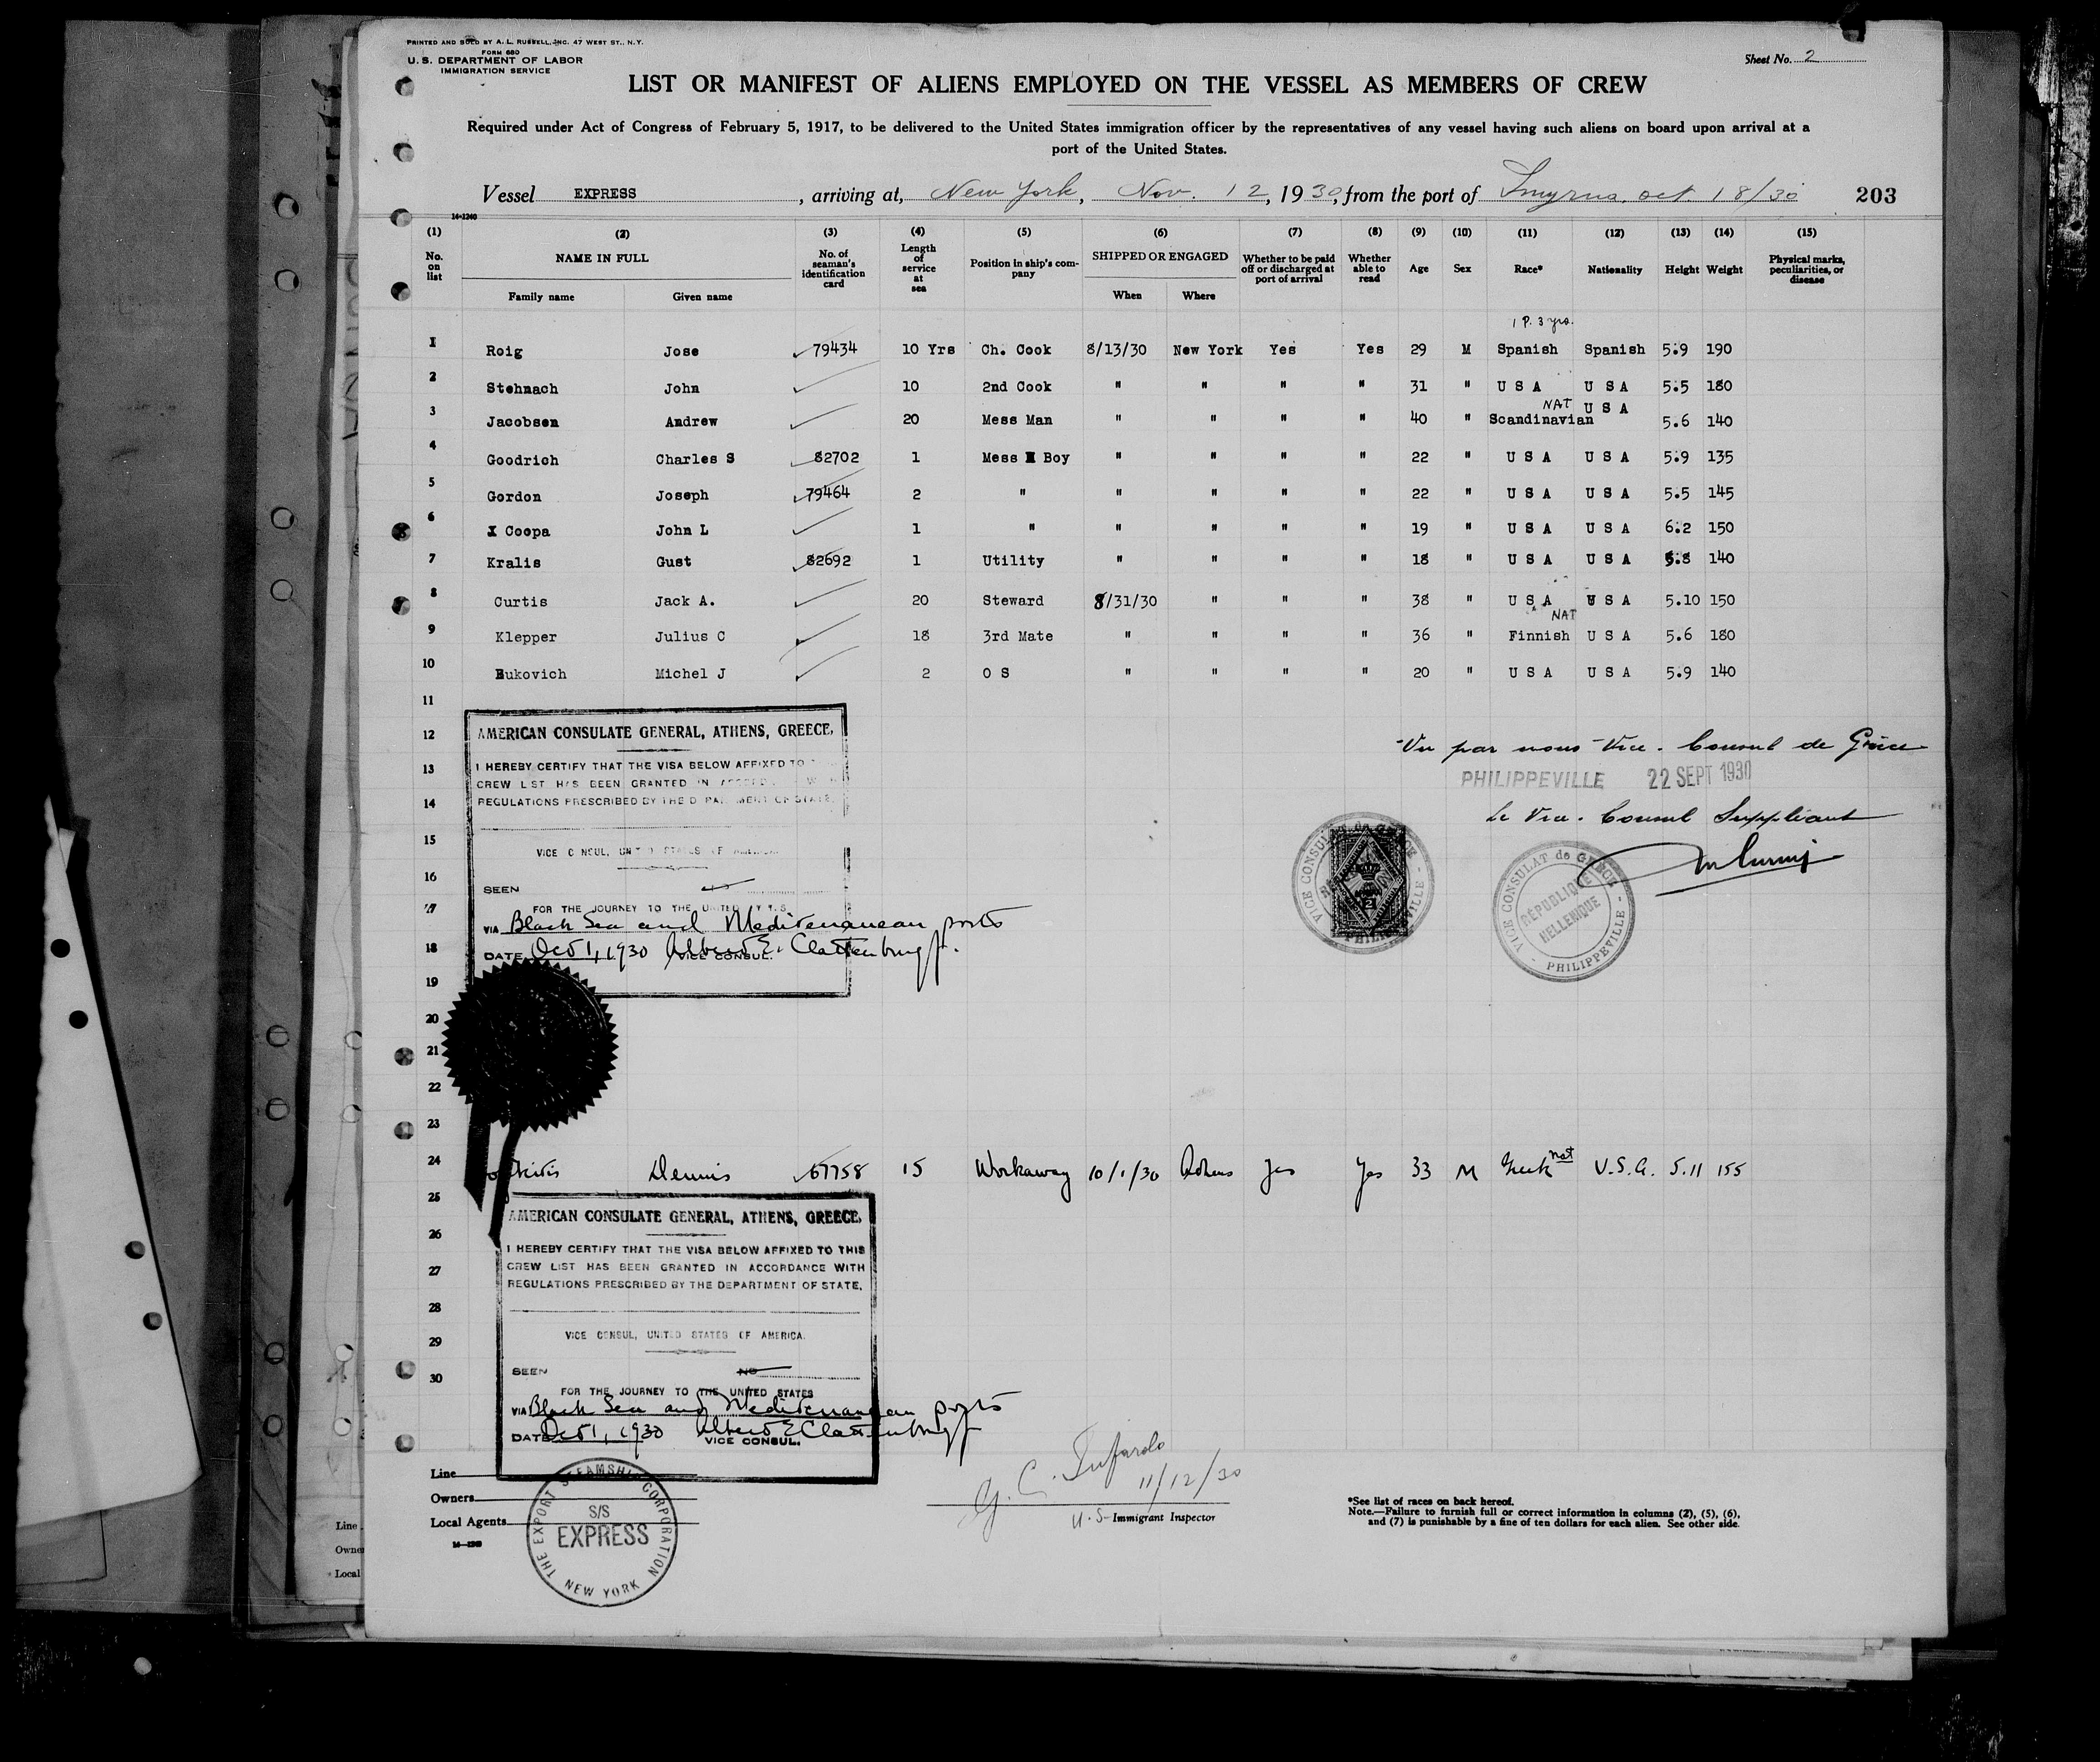 PRINTED AND SOLD BY A. L. RUSSELL, INC. 47 WEST ST., N.Y.
FORM 680
U. S. DEPARTMENT OF LABOR
IMMIGRATION SERVICE
Sheet No. 2
LIST OR MANIFEST OF ALIENS EMPLOYED ON THE VESSEL AS MEMBERS OF CREW
Required under Act of Congress of February 5, 1917, to be delivered to the United States immigration officer by the representatives of any vessel having such aliens on board upon arrival at a
port of the United States.
Vessel EXPRESS, arriving at, New York, Nov. 12, 1930, from the port of Smyrna, oct. 18/30 203
14-1240
(1) (2) (3) (4) (5) (6) (7) (8) (9) (10) (11) (12) (13) (14) (15)
No. on list NAME IN FULL No. of seaman's identification card Length of service at sea Position in ship's company SHIPPED OR ENGAGED Whether to be paid off or discharged at port of arrival Whether able to read Age Sex Race* Nationality Height Weight Physical marks, peculiarities, or disease
Family name Given name When Where
1 P. 3 yrs.
1 Roig Jose 79434 10 Yrs Ch. Cook 8/13/30 New York Yes Yes 29 M Spanish Spanish 5.9 190
2 Stehnach John 10 2nd Cook " " " " 31 " U S A U S A 5.5 180
3 Jacobsen Andrew 20 Mess Man " " " " 40 " Scandinavian NAT U S A 5.6 140
4 Goodrich Charles S 82702 1 Mess Boy " " " " 22 " U S A U S A 5.9 135
5 Gordon Joseph 79464 2 " " " " " 22 " U S A U S A 5.5 145
6 Coopa John L 1 " " " " " 19 " U S A U S A 6.2 150
7 Kralis Gust 82692 1 Utility " " " " 18 " U S A U S A 5.8 140
8 Curtis Jack A. 20 Steward 8/31/30 " " " 38 " U S A U S A 5.10 150
9 Klepper Julius C 18 3rd Mate " " " " 36 " Finnish NAT U S A 5.6 180
10 Bukovich Michel J 2 O S " " " " 20 " U S A U S A 5.9 140
11
12
13
14
15
16
17
18
19
20
21
22
23
AMERICAN CONSULATE GENERAL, ATHENS, GREECE.
I HEREBY CERTIFY THAT THE VISA BELOW AFFIXED TO
CREW LIST HAS BEEN GRANTED IN
REGULATIONS PRESCRIBED BY THE DEPARTMENT OF STATE.
VICE CONSUL, UNITED STATES OF AMERICA.
SEEN
FOR THE JOURNEY TO THE UNITED
VIA Black Sea and Mediterranean ports
DATE Oct 1, 1930 Albert E. Clattenburg Jr.
VICE CONSUL.
Vu par nous Vice-Consul de Grèce
PHILIPPEVILLE 22 SEPT 1930
Le Vice-Consul Suppliant
VICE CONSULAT de GRECE
PHILIPPEVILLE
VICE CONSULAT de GRECE
RÉPUBLIQUE
HELLENIQUE
PHILIPPEVILLE
24 Dennis 67758 15 Workaway 10/1/30 Athens Yes Yes 33 M Greek nat U.S.A. 5.11 155
25
26
27
28
29
30
AMERICAN CONSULATE GENERAL, ATHENS, GREECE.
I HEREBY CERTIFY THAT THE VISA BELOW AFFIXED TO THIS
CREW LIST HAS BEEN GRANTED IN ACCORDANCE WITH
REGULATIONS PRESCRIBED BY THE DEPARTMENT OF STATE.
VICE CONSUL, UNITED STATES OF AMERICA.
SEEN NO
FOR THE JOURNEY TO THE UNITED STATES
VIA Black Sea and Mediterranean ports
DATE Oct 1, 1930 Albert E Clattenburg Jr
VICE CONSUL.
Line
Owners
Local Agents
14-1240
THE EXPORT STEAMSHIP CORPORATION
S/S
EXPRESS
NEW YORK
11/12/30
U.S. Immigrant Inspector
*See list of races on back hereof.
Note.—Failure to furnish full or correct information in columns (2), (5), (6),
and (7) is punishable by a fine of ten dollars for each alien. See other side.
Line
Owne
Local